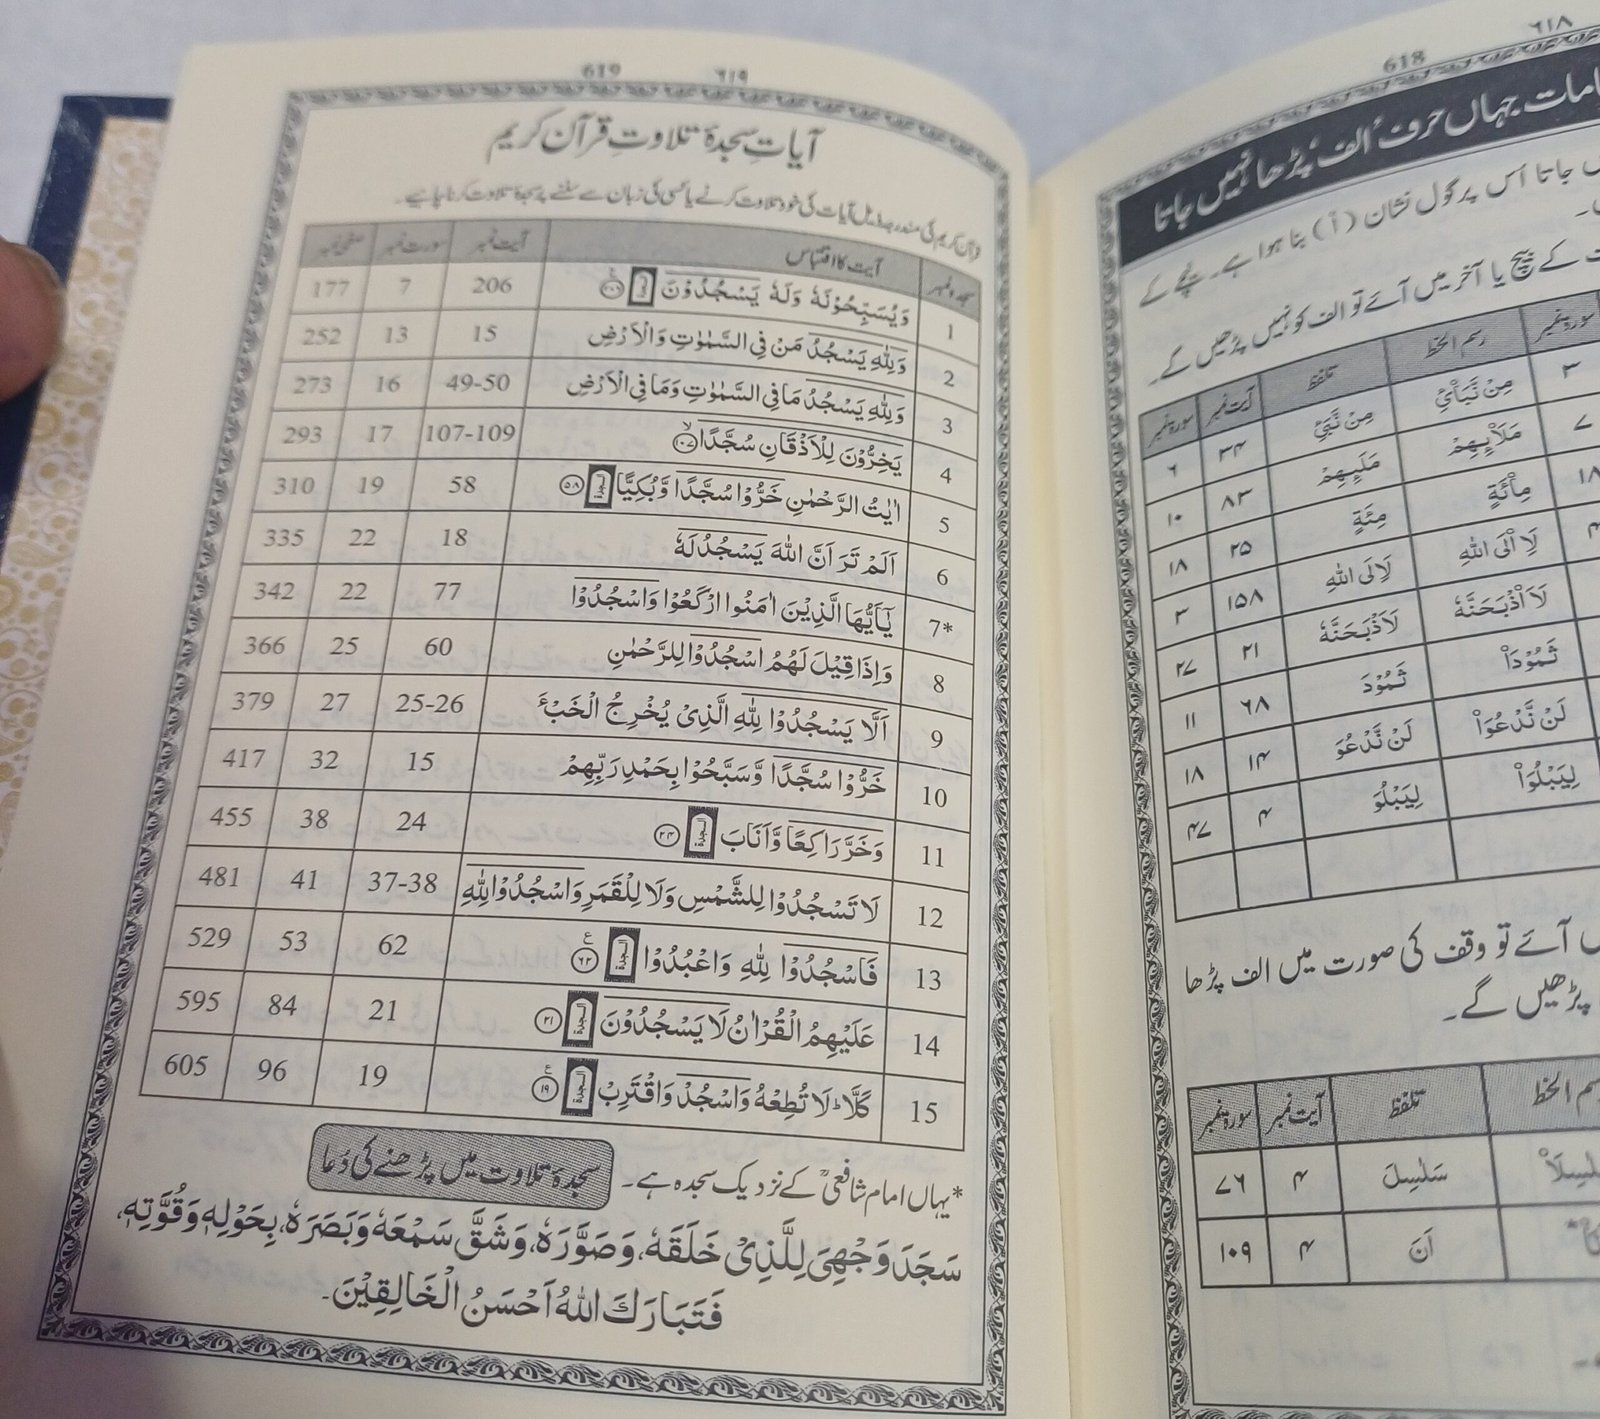 619 ٦١٩
آیاتِ سجدۂ تلاوتِ قرآن کریم
قرآن کریم کی مندرجہ ذیل آیات کی خود تلاوت کرنے یا کسی کی زبان سے سننے پر سجدۂ تلاوت کرنا چاہیے۔
سجدہ نمبر آیت کا اقتباس آیت نمبر سورت نمبر صفحہ نمبر
1 وَيُسَبِّحُوْنَهٗ وَلَهٗ يَسْجُدُوْنَ السجدة ٢٠٦ 206 7 177
2 وَلِلّٰهِ يَسْجُدُ مَنْ فِي السَّمٰوٰتِ وَالْاَرْضِ 15 13 252
3 وَلِلّٰهِ يَسْجُدُ مَا فِي السَّمٰوٰتِ وَمَا فِي الْاَرْضِ 49-50 16 273
4 يَخِرُّوْنَ لِلْاَذْقَانِ سُجَّدًا ١٠٧ 107-109 17 293
5 اٰيٰتُ الرَّحْمٰنِ خَرُّوْا سُجَّدًا وَّبُكِيًّا السجدة ٥٨ 58 19 310
6 اَلَمْ تَرَ اَنَّ اللّٰهَ يَسْجُدُ لَهٗ 18 22 335
7* يٰٓاَيُّهَا الَّذِيْنَ اٰمَنُوا ارْكَعُوْا وَاسْجُدُوْا 77 22 342
8 وَاِذَا قِيْلَ لَهُمُ اسْجُدُوْا لِلرَّحْمٰنِ 60 25 366
9 اَلَّا يَسْجُدُوْا لِلّٰهِ الَّذِيْ يُخْرِجُ الْخَبْءَ 25-26 27 379
10 خَرُّوْا سُجَّدًا وَّسَبَّحُوْا بِحَمْدِ رَبِّهِمْ 15 32 417
11 وَخَرَّ رَاكِعًا وَّاَنَابَ السجدة ٢٤ 24 38 455
12 لَا تَسْجُدُوْا لِلشَّمْسِ وَلَا لِلْقَمَرِ وَاسْجُدُوْا لِلّٰهِ 37-38 41 481
13 فَاسْجُدُوْا لِلّٰهِ وَاعْبُدُوْا السجدة ٦٢ 62 53 529
14 عَلَيْهِمُ الْقُرْاٰنُ لَا يَسْجُدُوْنَ السجدة ٢١ 21 84 595
15 كَلَّا ؕ لَا تُطِعْهُ وَاسْجُدْ وَاقْتَرِبْ السجدة ١٩ 19 96 605
*یہاں امام شافعیؒ کے نزدیک سجدہ ہے۔
سجدۂ تلاوت میں پڑھنے کی دعا
سَجَدَ وَجْهِيَ لِلَّذِيْ خَلَقَهٗ، وَصَوَّرَهٗ، وَشَقَّ سَمْعَهٗ وَبَصَرَهٗ، بِحَوْلِهٖ وَقُوَّتِهٖ،
فَتَبَارَكَ اللّٰهُ اَحْسَنُ الْخَالِقِيْنَ۔
618 ٦١٨
جہاں حرف 'الف' پڑھا نہیں جاتا
جاتا اس پر گول نشان (اْ) بنا ہوا ہے۔ نیچے کے
کے بیچ یا آخر میں آئے تو الف کو نہیں پڑھیں گے۔
سورۃ نمبر رسم الخط تلفظ آیت نمبر سورۃ نمبر
٣ مِنْ نَّبَاْئِ مِنْ نَّبَئِ ٣٤ ٦
٧ مَلَا۟ئِهِمْ مَلَئِهِمْ ٨٣ ١٠
١٨ مِا۟ئَةٍ مِئَةٍ ٢٥ ١٨
لَاۡ اِلَى اللّٰهِ لَاِلَى اللّٰهِ ١٥٨ ٣
لَا۟اَذْبَحَنَّهٗ لَاَذْبَحَنَّهٗ ٢١ ٢٧
ثَمُوْدَا۟ ثَمُوْدَ ٦٨ ١١
لَنْ نَّدْعُوَا۟ لَنْ نَّدْعُوَ ١٤ ١٨
لِيَبْلُوَا۟ لِيَبْلُوَ ٤ ٤٧
آئے تو وقف کی صورت میں الف پڑھا
پڑھیں گے۔
رسم الخط تلفظ آیت نمبر سورۃ نمبر
سَلٰسِلَ ٤ ٧٦
اَنَ ٤ ١٠٩